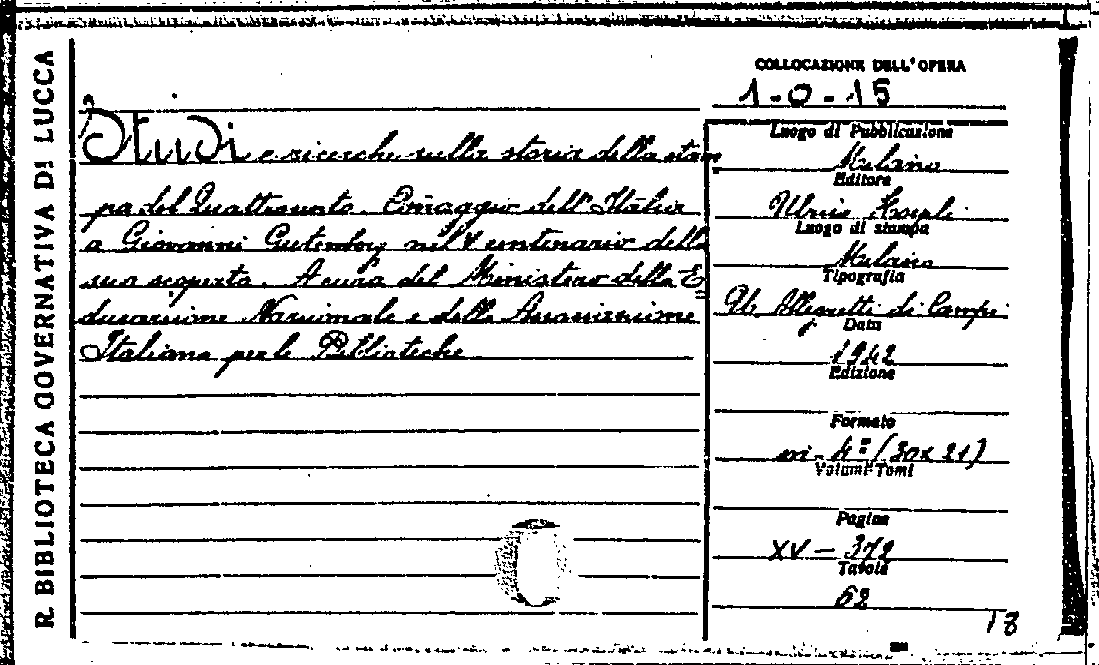 R. BIBLIOTECA GOVERNATIVA DI LUCCA
Studi e ricerche sulla storia della stam
pa del Quattrocento. Omaggio dell'Italia
a Giovanni Gutenberg nel V centenario della
sua scoperta. A cura del Ministero della E=
ducazione Nazionale e della Associazione
Italiana per le Biblioteche
COLLOCAZIONE DELL'OPERA
1-0-15
Luogo di Pubblicazione
Milano
Editore
Ulrico Hoepli
Luogo di stampa
Milano
Tipografia
U. Allegretti di Campi
Data
1942
Edizione
Formato
in-4º (30x21)
Volumi-Tomi
Pagine
XV-372
Tavole
62
18